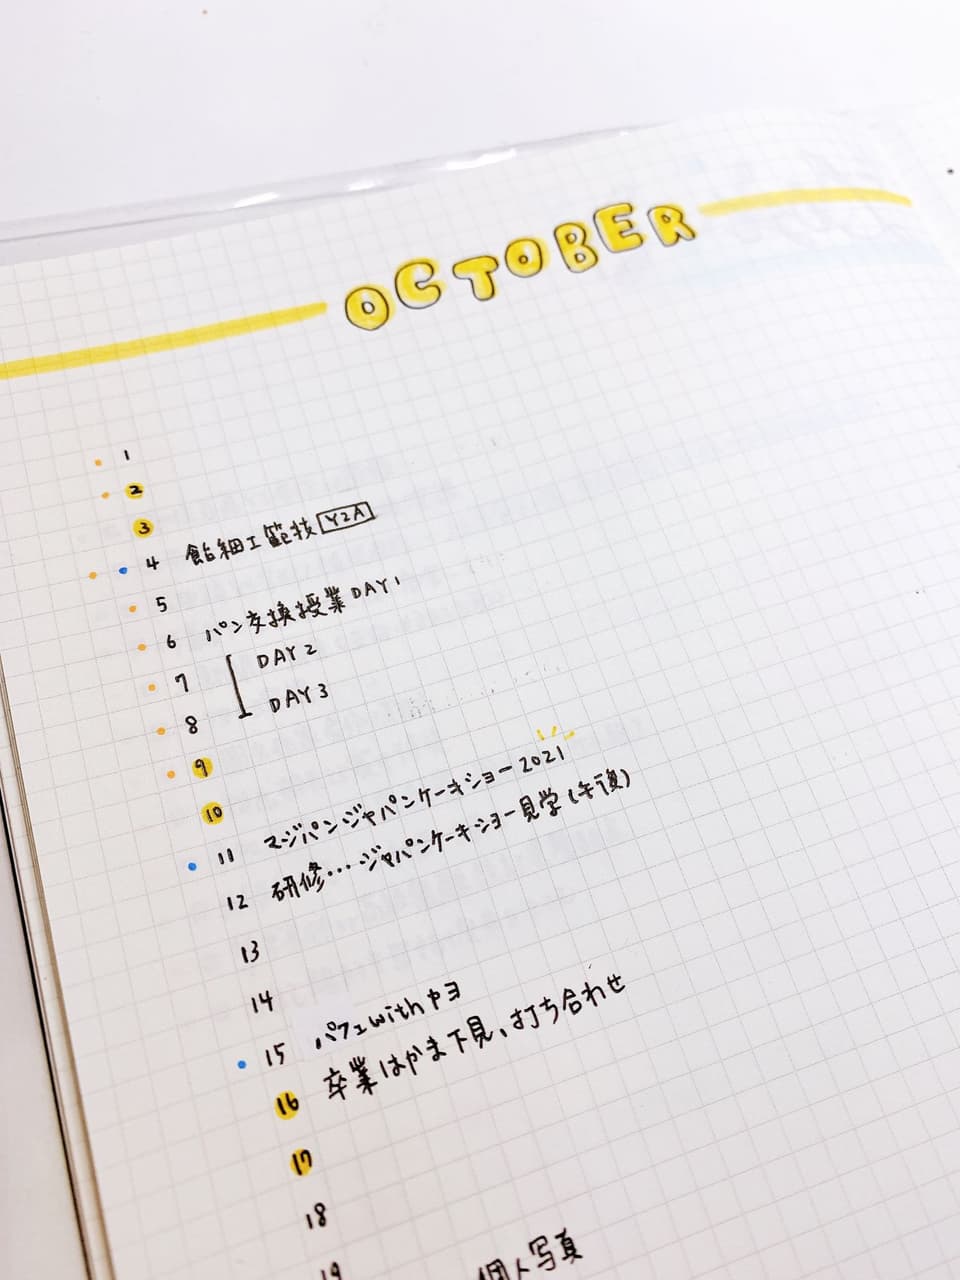 OCTOBER
1
2
3
4 飴細工範技 Y2A
5
6 パン交換授業 DAY1
7 DAY 2
8 DAY 3
9
10
11 マジパン ジャパンケーキショー2021
12 研修…ジャパンケーキショー見学(午後)
13
14
15 パフェwithヤヨ
16 卒業はかま下見、打ち合わせ
17
18
19 個人写真